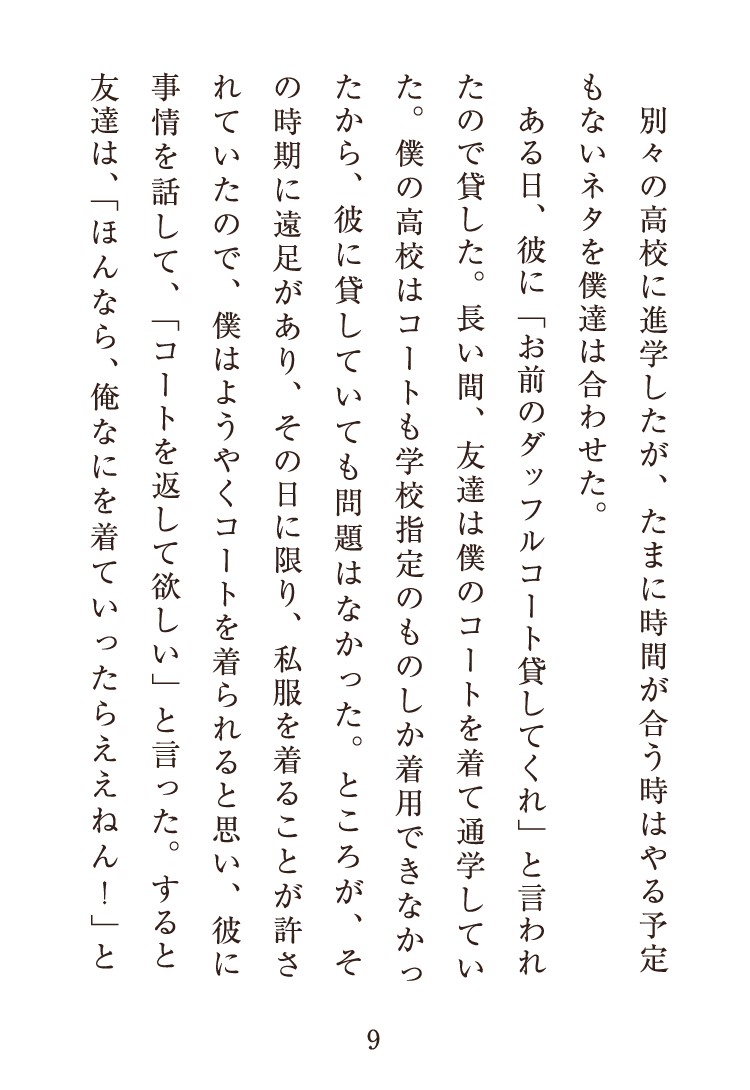 別々の高校に進学したが、たまに時間が合う時はやる予定
もないネタを僕達は合わせた。
ある日、彼に「お前のダッフルコート貸してくれ」と言われ
たので貸した。長い間、友達は僕のコートを着て通学してい
た。僕の高校はコートも学校指定のものしか着用できなかっ
たから、彼に貸していても問題はなかった。ところが、そ
の時期に遠足があり、その日に限り、私服を着ることが許さ
れていたので、僕はようやくコートを着られると思い、彼に
事情を話して、「コートを返して欲しい」と言った。すると
友達は、「ほんなら、俺なにを着ていったらええねん!」と
9